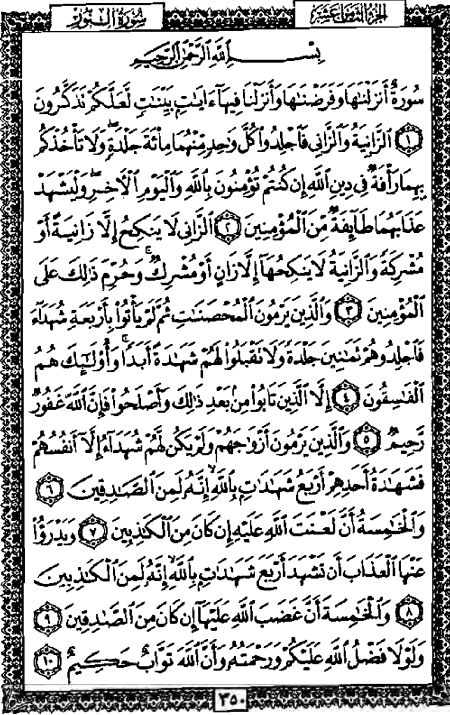 الجزء الثامن عشر
سورة النور
بِسْمِ اللَّهِ الرَّحْمَٰنِ الرَّحِيمِ
سُورَةٌ أَنزَلْنَاهَا وَفَرَضْنَاهَا وَأَنزَلْنَا فِيهَا آيَاتٍ بَيِّنَاتٍ لَّعَلَّكُمْ تَذَكَّرُونَ
﴿١﴾ الزَّانِيَةُ وَالزَّانِي فَاجْلِدُوا كُلَّ وَاحِدٍ مِّنْهُمَا مِائَةَ جَلْدَةٍ وَلَا تَأْخُذْكُم
بِهِمَا رَأْفَةٌ فِي دِينِ اللَّهِ إِن كُنتُمْ تُؤْمِنُونَ بِاللَّهِ وَالْيَوْمِ الْآخِرِ وَلْيَشْهَدْ
عَذَابَهُمَا طَائِفَةٌ مِّنَ الْمُؤْمِنِينَ ﴿٢﴾ الزَّانِي لَا يَنكِحُ إِلَّا زَانِيَةً أَوْ
مُشْرِكَةً وَالزَّانِيَةُ لَا يَنكِحُهَا إِلَّا زَانٍ أَوْ مُشْرِكٌ وَحُرِّمَ ذَٰلِكَ عَلَى
الْمُؤْمِنِينَ ﴿٣﴾ وَالَّذِينَ يَرْمُونَ الْمُحْصَنَاتِ ثُمَّ لَمْ يَأْتُوا بِأَرْبَعَةِ شُهَدَاءَ
فَاجْلِدُوهُمْ ثَمَانِينَ جَلْدَةً وَلَا تَقْبَلُوا لَهُمْ شَهَادَةً أَبَدًا وَأُولَٰئِكَ هُمُ
الْفَاسِقُونَ ﴿٤﴾ إِلَّا الَّذِينَ تَابُوا مِن بَعْدِ ذَٰلِكَ وَأَصْلَحُوا فَإِنَّ اللَّهَ غَفُورٌ
رَّحِيمٌ ﴿٥﴾ وَالَّذِينَ يَرْمُونَ أَزْوَاجَهُمْ وَلَمْ يَكُن لَّهُمْ شُهَدَاءُ إِلَّا أَنفُسُهُمْ
فَشَهَادَةُ أَحَدِهِمْ أَرْبَعُ شَهَادَاتٍ بِاللَّهِ إِنَّهُ لَمِنَ الصَّادِقِينَ ﴿٦﴾
وَالْخَامِسَةُ أَنَّ لَعْنَتَ اللَّهِ عَلَيْهِ إِن كَانَ مِنَ الْكَاذِبِينَ ﴿٧﴾ وَيَدْرَؤُا
عَنْهَا الْعَذَابَ أَن تَشْهَدَ أَرْبَعَ شَهَادَاتٍ بِاللَّهِ إِنَّهُ لَمِنَ الْكَاذِبِينَ
﴿٨﴾ وَالْخَامِسَةَ أَنَّ غَضَبَ اللَّهِ عَلَيْهَا إِن كَانَ مِنَ الصَّادِقِينَ ﴿٩﴾
وَلَوْلَا فَضْلُ اللَّهِ عَلَيْكُمْ وَرَحْمَتُهُ وَأَنَّ اللَّهَ تَوَّابٌ حَكِيمٌ ﴿١٠﴾
٣٥٠